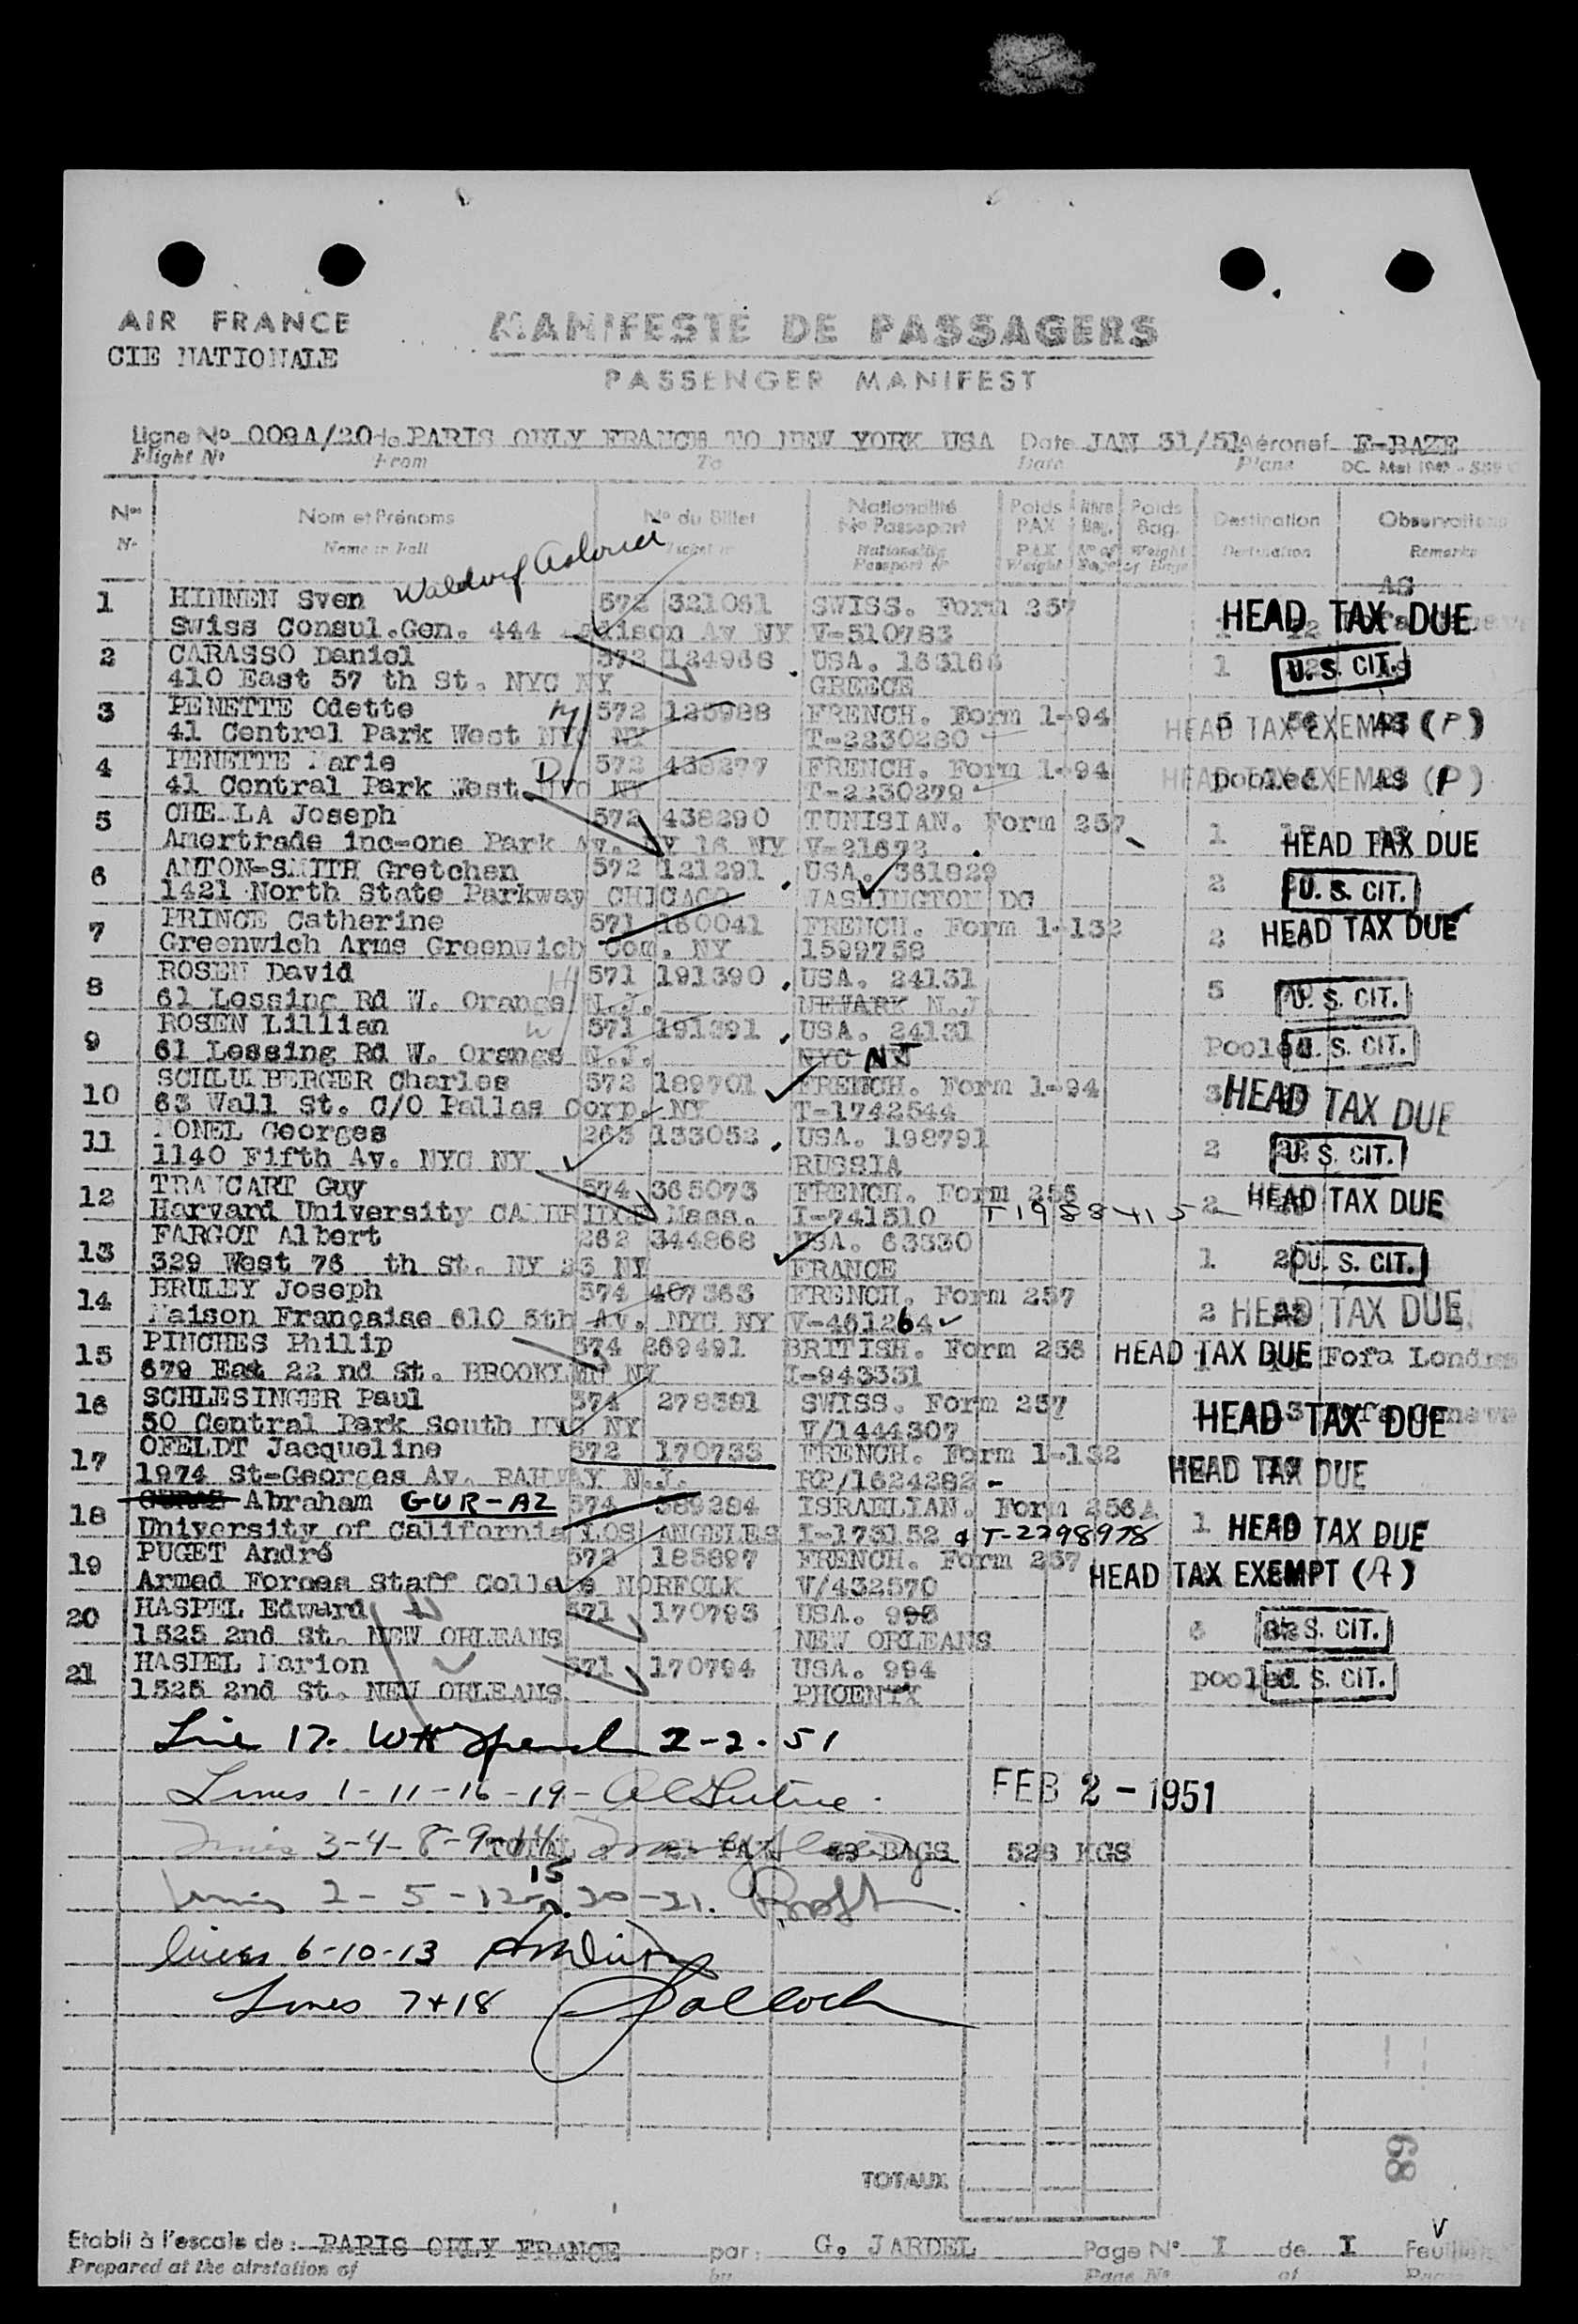 AIR FRANCE
CIE NATIONALE
MANIFESTE DE PASSAGERS
PASSENGER MANIFEST
Ligne No 009A/20 de PARIS ORLY FRANCE TO NEW YORK USA Date JAN 31/51 Aéronef F-BAZE
Flight No From To Date Plane
Nos Nom et Prénoms No du Billet Nationalité No Passeport Poids PAX Poids Bag. Destination Observations
Name in Full Nationality Passport No PAX Weight No of Bags Weight of Bags Destination Remarks
AS
1 HINNEN Sven Waldorf Astoria 572 321081 SWISS. Form 257 HEAD TAX DUE
Swiss Consul.Gen. 444 Av NY V-510783
2 CARASSO Daniel 572 124968 USA. 1 U. S. CIT.
410 East 57 th St. NYC NY GREECE
3 PENETTE Odette M 572 125988 FRENCH. Form 1-94 HEAD TAX EXEMPT (P)
41 Central Park West NYC NY T-2230280
4 PENETTE Marie D 572 438277 FRENCH. Form 1-94 pooled HEAD TAX EXEMPT (P)
41 Central Park West NYC NY T-2230279
5 Joseph 572 438290 TUNISIAN. Form 257 1 HEAD TAX DUE
Amertrade inc-one Park Av. NY 16 NY V-21672
6 ANTON-SMITH Gretchen 572 121291 USA. 361829 2 U. S. CIT.
1421 North State Parkway CHICAGO WASHINGTON DC
7 PRINCE Catherine 571 160041 FRENCH. Form 1-132 2 HEAD TAX DUE
Greenwich Arms Greenwich Con. NY 1599758
8 ROSEN David H 571 191390 USA. 24131 5 U. S. CIT.
61 Lessing Rd W. Orange N.J. NEWARK N.J.
9 ROSEN Lillian W 571 191391 USA. 24131 Pooled U. S. CIT.
61 Lessing Rd W. Orange N.J. NYC NY NJ
10 SCHLUMBERGER Charles 572 189701 FRENCH. Form 1-94 3 HEAD TAX DUE
63 Wall St. C/O Pallas Corp. NY T-1742544
11 Georges 263 133052 USA. 198791 2 U. S. CIT.
1140 Fifth Av. NYC NY RUSSIA
12 TRANCART Guy 574 365073 FRENCH. Form 256 2 HEAD TAX DUE
Harvard University CAMBRIDGE Mass. I-741510
13 FARGOT Albert 262 344868 USA. 63330 1 20 U. S. CIT.
329 West 76 th St. NY 23 NY FRANCE
14 BRULEY Joseph 574 407363 FRENCH. Form 257 2 HEAD TAX DUE
Maison Française 610 5th Av. NYC NY V-461264
15 PINCHES Philip 574 269491 BRITISH. Form 256 HEAD TAX DUE Fofa Londres
679 East 22 nd St. BROOKLYN NY I-943331
16 SCHLESINGER Paul 574 278381 SWISS. Form 257 HEAD TAX DUE
50 Central Park South NYC NY V/1444307
17 OFELDT Jacqueline 572 170733 FRENCH. Form 1-132 HEAD TAX DUE
1974 St-Georges Av. RAHWAY N.J. RP/1624282
18 Abraham GUR-AZ 574 389284 ISRAELIAN. Form 256A 1 HEAD TAX DUE
University of California LOS ANGELES I-173152 & T-2298978
19 PUGET André 572 185897 FRENCH. Form 257 HEAD TAX EXEMPT (A)
Armed Forces Staff College NORFOLK V/432570
20 HASPEL Edward 571 170793 USA. 993 U. S. CIT.
1525 2nd St. NEW ORLEANS NEW ORLEANS
21 HASPEL Marion 571 170794 USA. 994 pooled U. S. CIT.
1525 2nd St. NEW ORLEANS PHOENIX
Line 17. 2-2-51
Lines 1-11-16-19- FEB 2-1951
Lines 3-4-8-9-14 TOTAL 21 PAX BAGS 528 KGS
15
Lines 2-5-12- 20-21.
lines 6-10-13
Lines 7+18 Pollock
68
TOTAUX
Etabli à l'escale de: PARIS ORLY FRANCE par: G. JARDEL Page No I de I
Prepared at the airstation of by Page No of